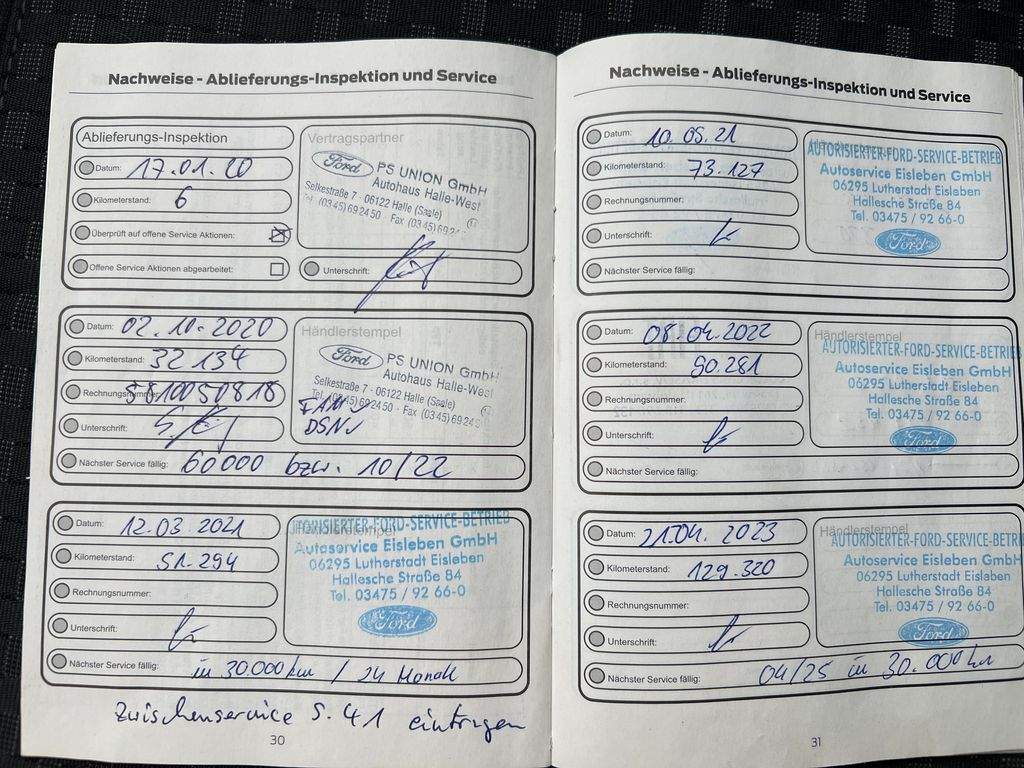 Nachweise - Ablieferungs-Inspektion und Service
Ablieferungs-Inspektion
Datum: 17.01.20
Kilometerstand: 6
Überprüft auf offene Service Aktionen:
Offene Service Aktionen abgearbeitet:
Vertragspartner
Ford PS UNION GmbH
Autohaus Halle-West
Selkestraße 7 - 06122 Halle (Saale)
Tel. (0345) 69 24 50 - Fax (0345) 69 24
Unterschrift:
Datum: 02.10.2020
Kilometerstand: 32 134
Rechnungsnummer: SS10050818
Unterschrift:
Händlerstempel
Ford PS UNION GmbH
Autohaus Halle-West
Selkestraße 7 - 06122 Halle (Saale)
Tel. (0345) 69 24 50 - Fax (0345) 69 24
FAM ✓
DSN ✓
Nächster Service fällig: 60000 bzw. 10/22
Datum: 12.03.2021
Kilometerstand: 51.294
Rechnungsnummer:
Unterschrift:
Händlerstempel
TORISIERTER-FORD-SERVICE-BETRIEB
Autoservice Eisleben GmbH
06295 Lutherstadt Eisleben
Hallesche Straße 84
Tel. 03475 / 92 66-0
Ford
Nächster Service fällig: in 30.000 km / 24 Monate
Zwischenservice S. 41 eintragen
30
Nachweise - Ablieferungs-Inspektion und Service
Datum: 10.05.21
Kilometerstand: 73.127
Rechnungsnummer:
Unterschrift:
AUTORISIERTER-FORD-SERVICE-BETRIEB
Autoservice Eisleben GmbH
06295 Lutherstadt Eisleben
Hallesche Straße 84
Tel. 03475 / 92 66-0
Ford
Nächster Service fällig:
Datum: 08.04.2022
Kilometerstand: 90.281
Rechnungsnummer:
Unterschrift:
Händlerstempel
AUTORISIERTER-FORD-SERVICE-BETRIEB
Autoservice Eisleben GmbH
06295 Lutherstadt Eisleben
Hallesche Straße 84
Tel. 03475 / 92 66-0
Ford
Nächster Service fällig:
Datum: 21.04.2023
Kilometerstand: 129.320
Rechnungsnummer:
Unterschrift:
Händlerstempel
AUTORISIERTER-FORD-SERVICE-BETRI
Autoservice Eisleben GmbH
06295 Lutherstadt Eisleben
Hallesche Straße 84
Tel. 03475 / 92 66-0
Ford
Nächster Service fällig: 04/25 in 30.000 km
31